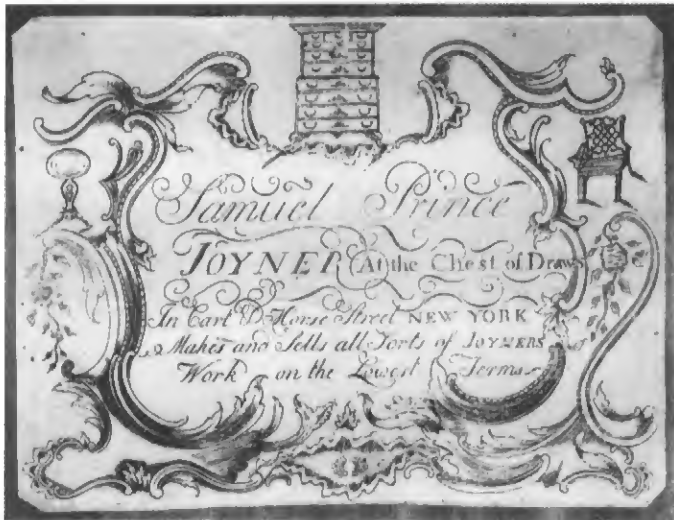 Samuel Prince
JOYNER At the Chest of Draws
In Cart & Horse Street NEW YORK
Makes and Sells all Sorts of JOYNERS
Work on the Lowest Terms